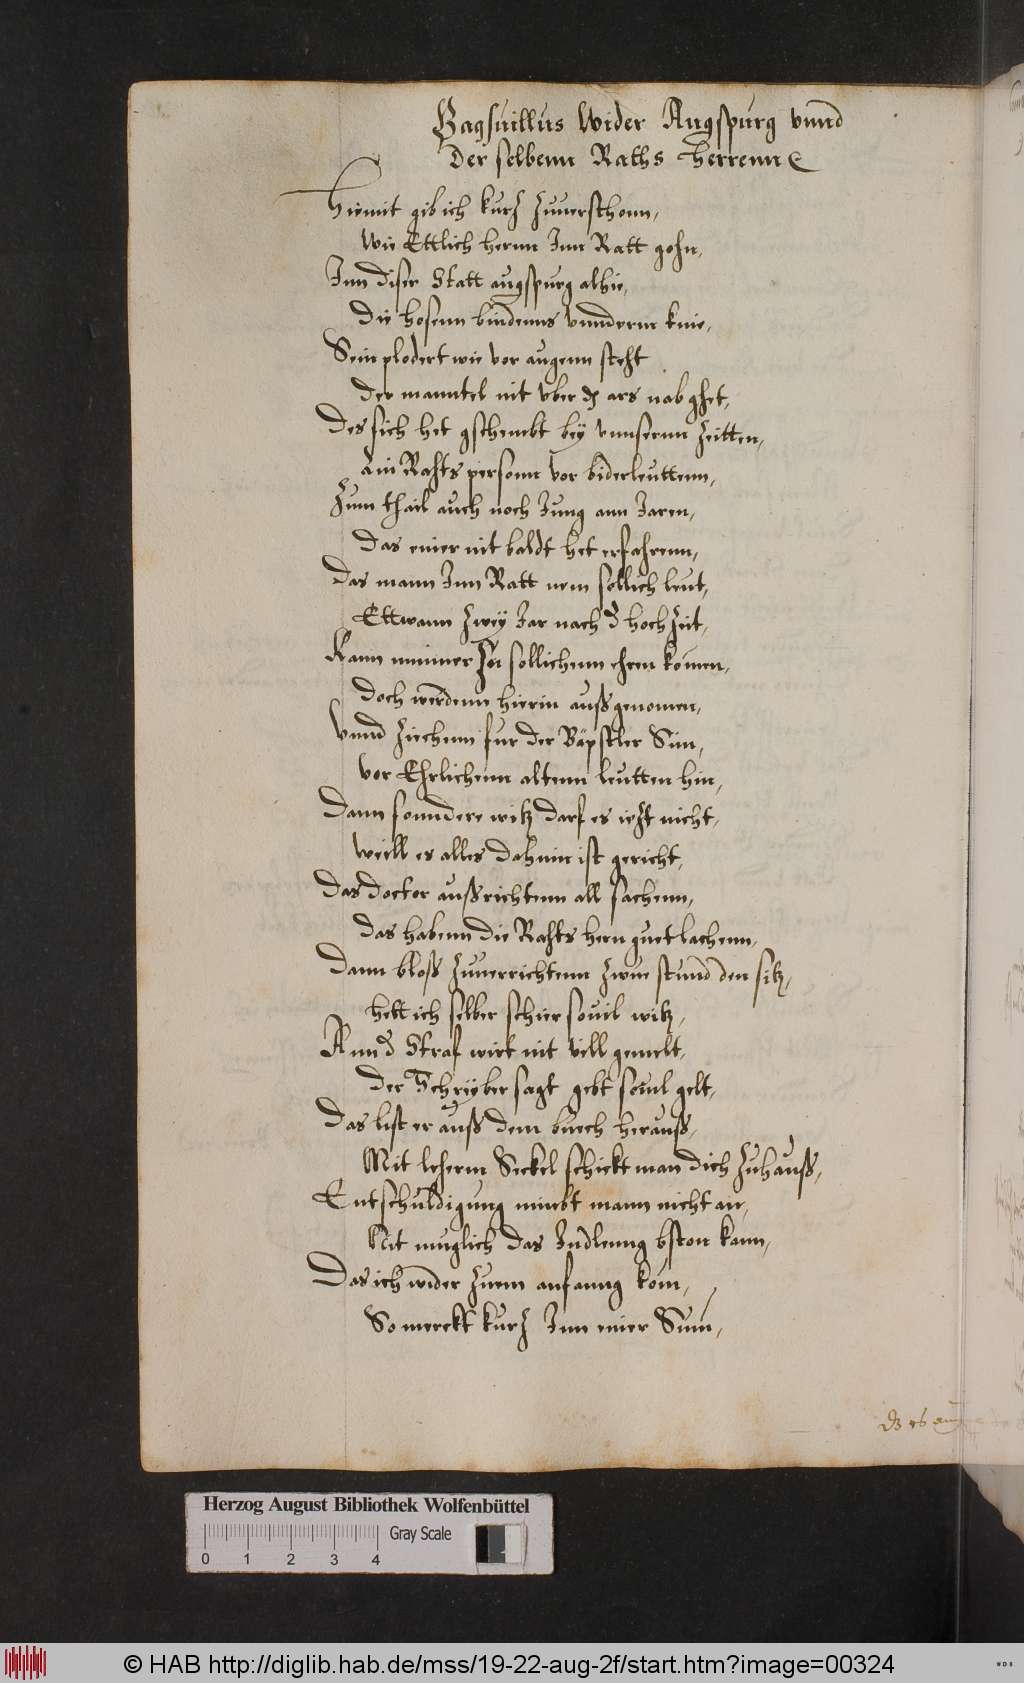 Paßuillus wider Augspurg vnnd
der selbenn Raths Herrenn
Hiemit gib ich kurtz zuuersthonn,
Wie Ettlich herrn Inn Ratt gohn,
Inn diser Statt augspurg alhie,
die hosenn bindenns vnnderm knie,
Sein plodert wie vor augenn steht
der manntel nit vber dz ars nab ghet,
Des sich het gschembt bey vnnsernn zeitten,
Ain Rahts personn vor biderleuttenn,
Zum thail auch noch Jung ann Jaren,
das einer nit baldt het erfahrenn,
das mann Inn Ratt nem sollich leut,
Ettwann zwey Jar nach d hochzeit,
Kann nimmer zu sollichenn ehren komen,
doch werdenn hierin außgenomen,
Vnnd ziehenn fur der Bäpstler Sün,
vor Ehrlichenn altenn leutten hin,
Dann sonndere witz darf es ietzt nicht,
weill es alles dahinn ist gericht,
das doctor außrichtenn all sachenn,
das habenn die Rahts hern guet lachenn,
Dann bloß zuuerrichtenn zwue stund den sitz,
hett ich selber schier souil witz,
Ann d Straf wirt nit vill gemelt,
der Schreyber sagt gebt souil gelt,
das list er auß dem buech herauß,
Mit lehrem Seckel schickt man dich zuhauß,
Entschuldigung nimbt mann nicht an,
Nit muglich das Jndlenng bston kann,
Das ich wider zuem anfanng kom,
So merckt kurtz Inn einer Sum,
dz es
Herzog August Bibliothek Wolfenbüttel
Gray Scale
0 1 2 3 4
© HAB http://diglib.hab.de/mss/19-22-aug-2f/start.htm?image=00324